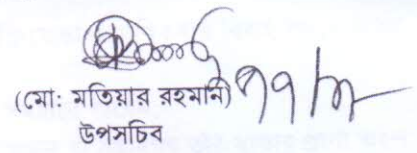 (মো: মতিয়ার রহমান)
উপসচিব